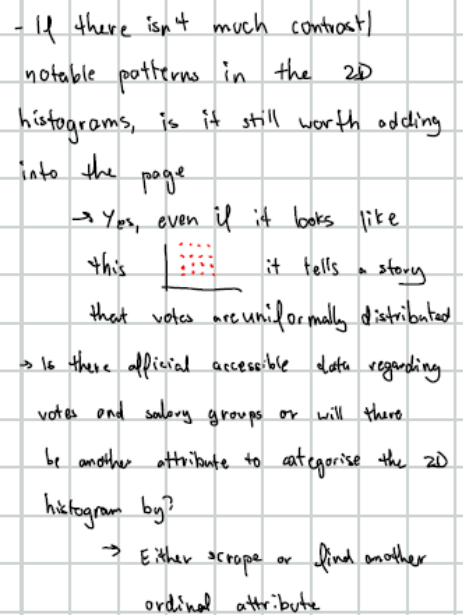 - If there isn't much contrast/
notable patterns in the 2D
histograms, is it still worth adding
into the page
→ Yes, even if it looks like
this it tells a story
that votes are uniformally distributed
→ Is there official accessible data regarding
votes and salary groups or will there
be another attribute to categorise the 2D
histogram by?
→ Either scrape or find another
ordinal attribute